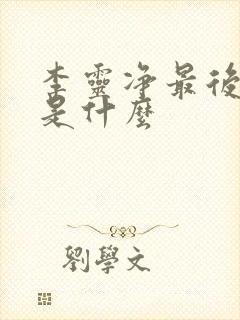 李靈净最後
是什麼
劉學文